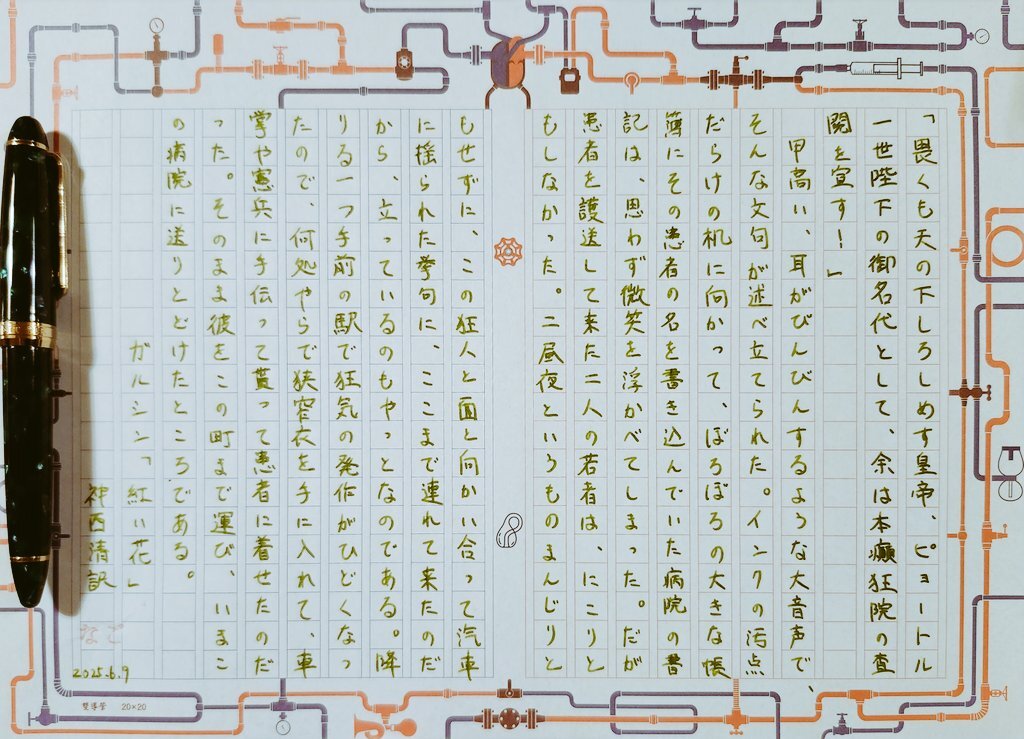 「畏くも天の下しろしめす皇帝、ピョートル
一世陛下の御名代として、余は本癲狂院の査
閲を宣す！」
甲高い、耳がびんびんするような大音声で、
そんな文句が述べ立てられた。インクの汚点
だらけの机に向かって、ぼろぼろの大きな帳
簿にその患者の名を書き込んでいた病院の書
記は、思わず微笑を浮かべてしまった。だが
患者を護送して来た二人の若者は、にこりと
もしなかった。二昼夜というものまんじりと
もせずに、この狂人と面と向かい合って汽車
に揺られた挙句に、ここまで連れて来たのだ
から、立っているのもやっとなのである。降
りる一つ手前の駅で狂気の発作がひどくなっ
たので、何処やらで狭窄衣を手に入れて、車
掌や憲兵に手伝って貰って患者に着せたのだ
った。そのまま彼をこの町まで運び、いまこ
の病院に送りとどけたところである。
ガルシン「紅い花」
神西清訳
なご
2025.6.9
雙導管 20×20